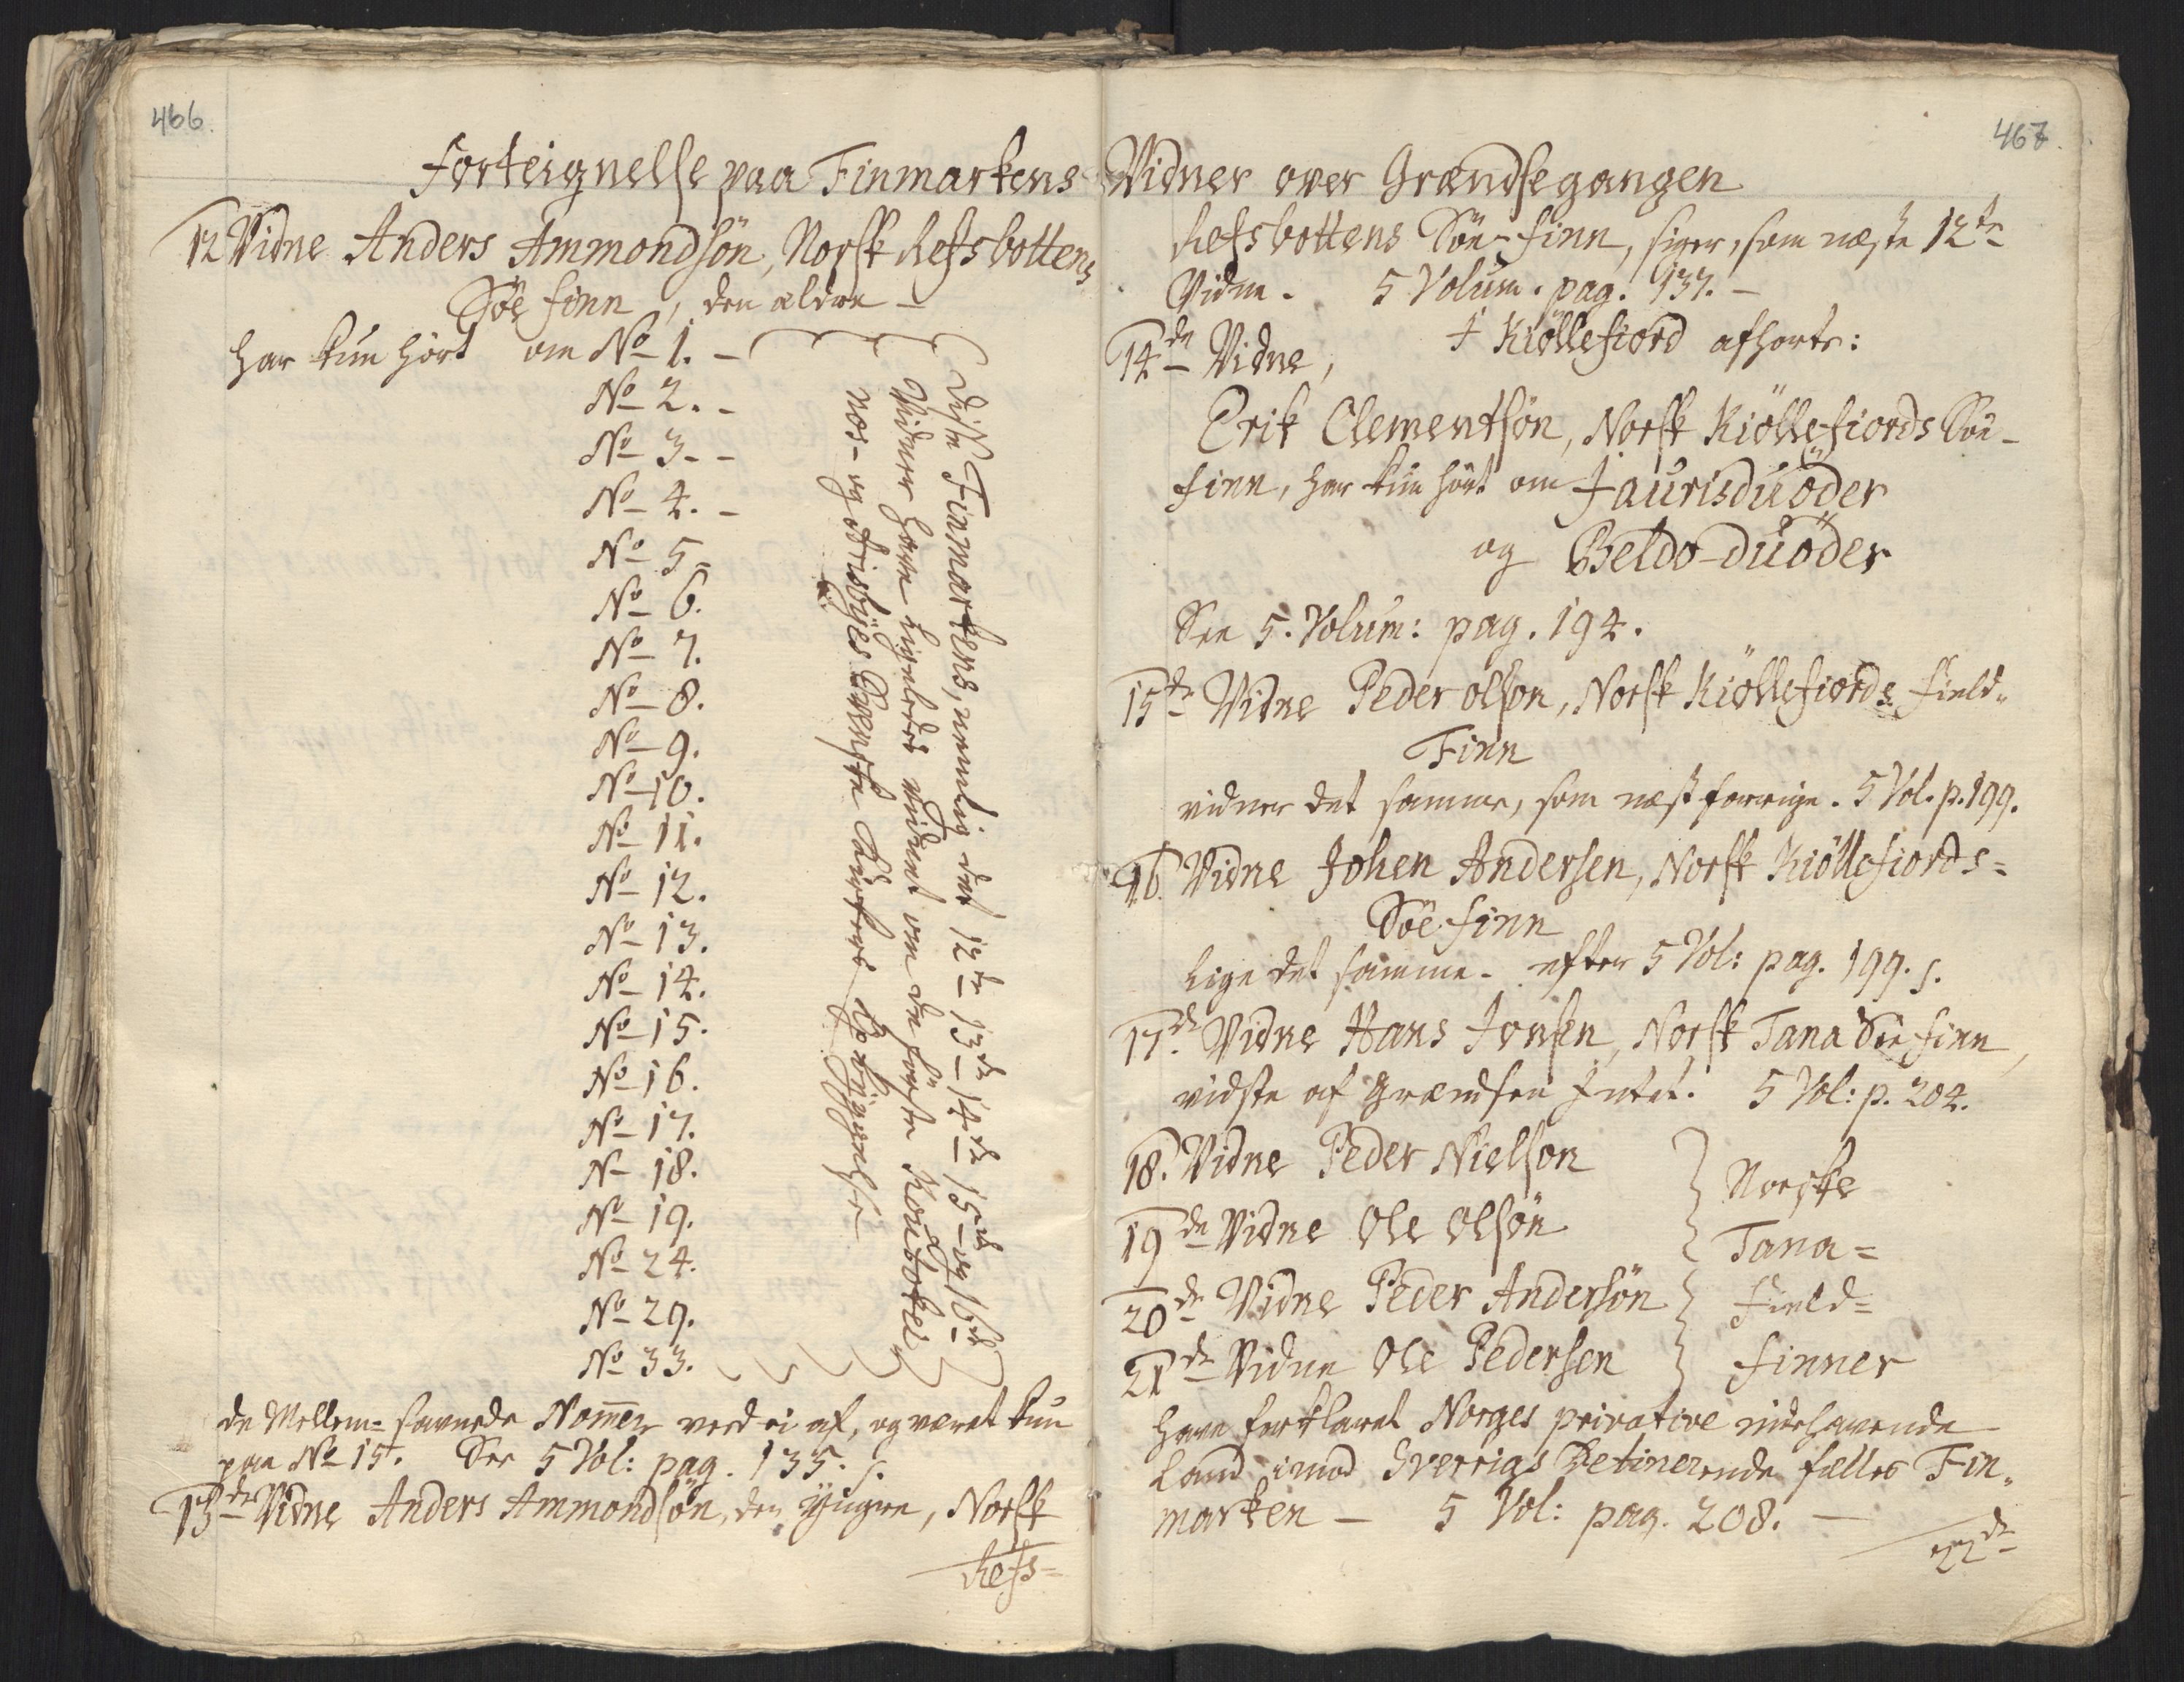 466.
Forteignelse paa Finmarkens
12 Vidne Anders Ammondsön, Norsk Refsbottens
Söe Finn, den ældre -
har kun hört om No 1. -
No 2. -
No 3. -
No 4. -
No 5 -
No 6.
No 7.
No 8.
No 9.
No 10.
No 11.
No 12.
No 13.
No 14.
No 15.
No 16.
No 17.
N 18.
No 19.
No 24.
No 29.
No 33.
Disse Finmarkens, nemlig det 12de 13de 14de 15de og 16de
Vidner have ligeledes vidnet om de förste Koutokei-
nos- og Svenske
de Mellem- Nommer ved ei af, og været kun
paa No 15. See 5 Vol: pag. 135. s.
13de Vidne Anders Ammondsön, den Yngre, Norsk
Refs-
467.
Vidner over Grændsegangen
Refsbottens Söe-Finn, siger, som næste 12te
Vidne. 5 Volum. pag. 137. -
I Kiöllefiord afhörte:
14de Vidne,
Erik Clementsön, Norsk Kiöllefiords Söe-
Finn, har kun hört om Jaurisduöder
og Beldo-duöder
See 5. Volum: pag. 194.
15de Vidne Peder Olson, Norsk Kiöllefiords Field-
Finn
vidner det samme, som næst forrige. 5 Vol. p. 199.
16. Vidne Johen Andersen, Norsk Kiöllefiords=
Söe Finn
lige det samme - efter 5 Vol: pag. 199. s.
17de Vidne Hans Jonsen, Norsk Tana Söe Finn,
vidste af Grændsen Intet. 5 Vol: p. 204.
18. Vidne Peder Nielson
19de Vidne Ole Olsön
20de Vidne Peder Andersön
21de Vidne Ole Pedersen
Norske
Tana=
Field=
Finner
have forklaret Norges privative indehavende
Land imod Sverrigs Detinerende fælles Fin-
marken - 5 Vol: pag. 208. -
22de